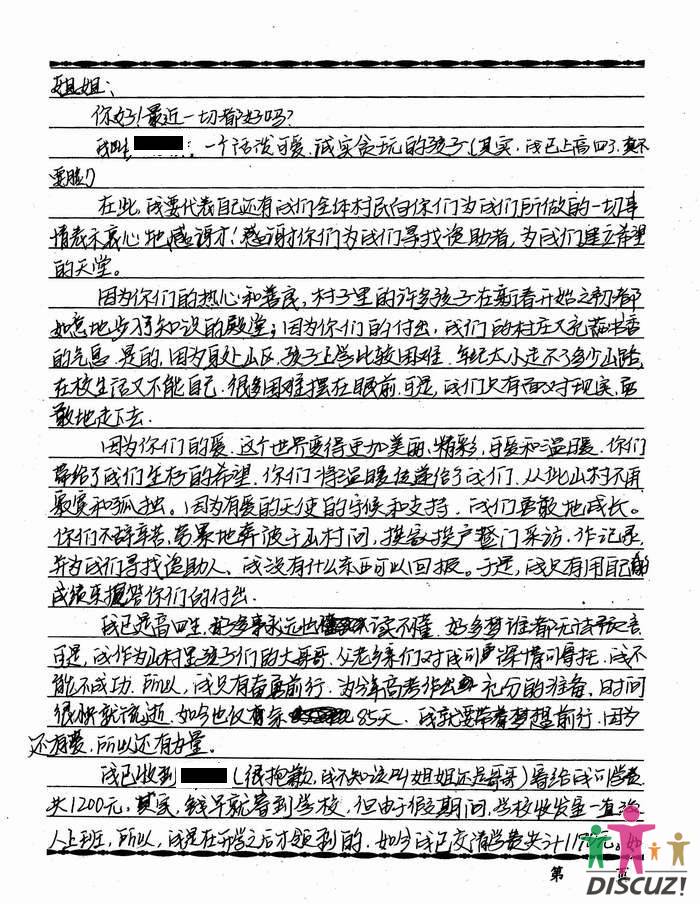 姐姐：
你好！最近一切都好吗？
我叫 ；一个活泼可爱、诚实贪玩的孩子（其实，我已上高四了，真不
要脸！）
在此，我要代表自己还有我们全体村民向你们为我们所做的一切事
情表示衷心地感谢！感谢你们为我们寻找资助者，为我们建立希望
的天堂。
因为你们的热心和善良，村子里的许多孩子在新春开始之初都
如意地步入知识的殿堂；因为你们的付出，我们的村庄又充满书香
的气息。是的，因为身处山区，孩子上学比较困难，年纪太小走不了多少山路，
在校生活又不能自己，很多困难摆在眼前。可是，我们只有面对现实，勇
敢地走下去。
因为你们的爱，这个世界变得更加美丽、精彩，可爱和温暖。你们
带给了我们生存的希望，你们将温暖传递给了我们，从此山村不再
寂寞和孤独。因为有爱的天使的守候和支持，我们勇敢地成长。
你们不辞辛苦，劳累地奔波于山村间，挨家挨户登门采访，作记录，
并为我们寻找资助人、我没有什么东西可以回报。于是，我只有用自己的
成绩来报答你们的付出。
我已是高四生，好多事永远也读不懂，好多梦谁都无法预言。
可是，我作为山村里孩子们的大哥哥，父老乡亲们对我更深情可寄托，我不
能不成功。所以，我只有奋勇前行，为今年高考作出充分的准备。时间
很快就流逝，如今也仅有余85天，我就要带着梦想前行，因为
还有爱，所以还有力量。
我已收到 （很抱歉，我不知该叫姐姐还是哥哥）寄给我的学费
共1200元，其实，钱早就寄到学校，但由于假期间，学校收发室一直没
人上班，所以，我是在开学之后才领到的，如今我已交清学费共计1170元。如
第 页
DISCUZ!